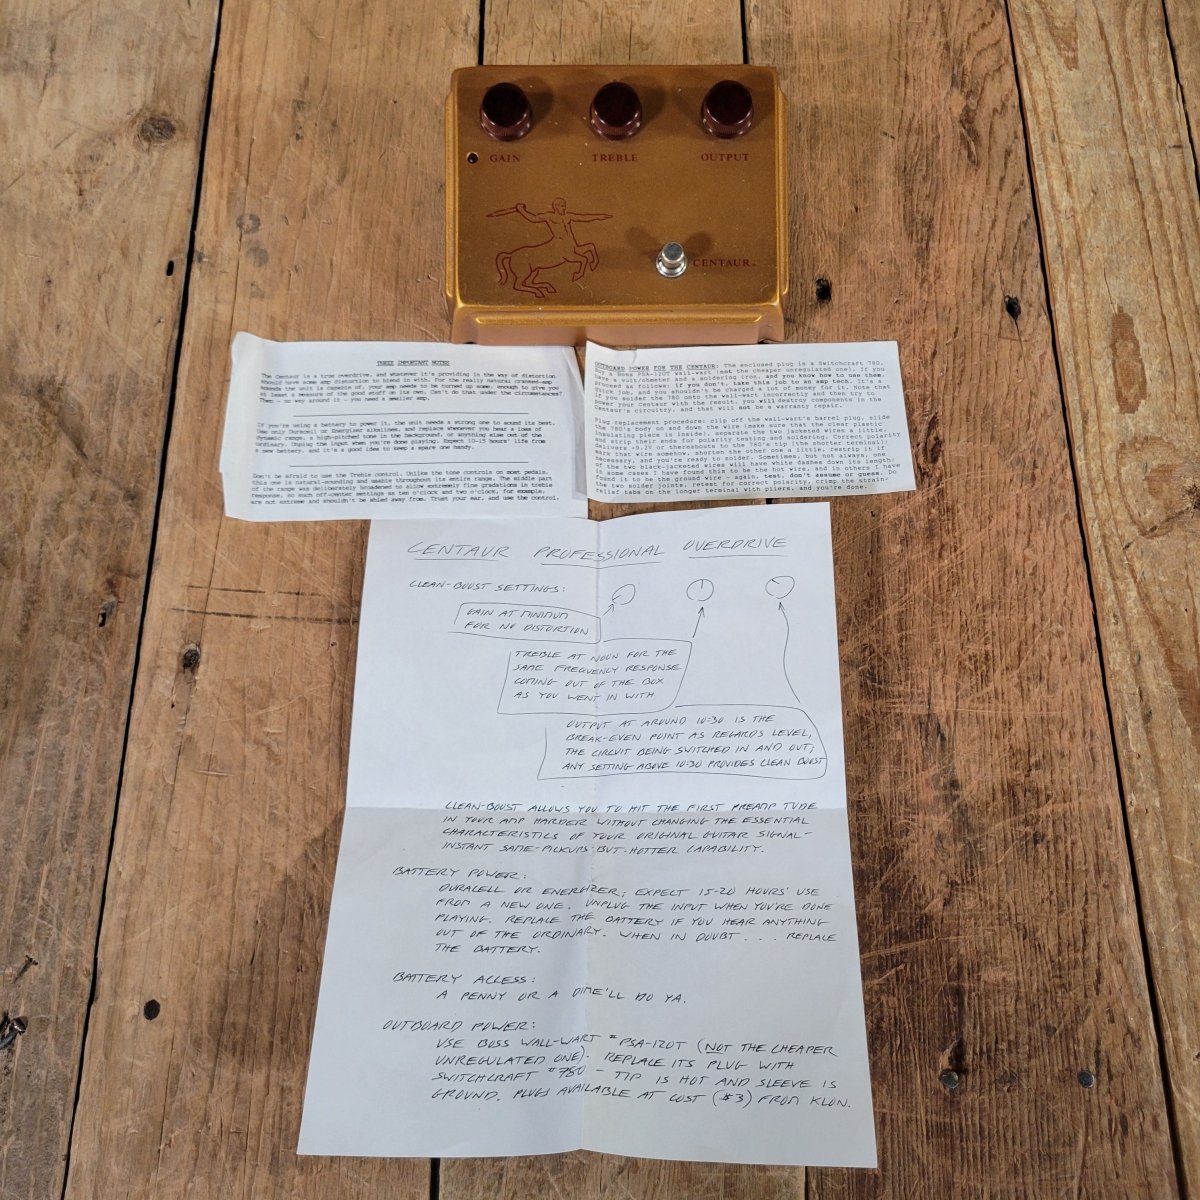 GAIN TREBLE OUTPUT
CENTAUR
THREE IMPORTANT NOTES
The Centaur is a true overdrive, and whatever it's providing in the way of distortion
should have some amp distortion to blend in with. For the really natural cranked-amp
sounds the unit is capable of, your amp needs to be turned up some, enough to give you
at least a measure of the good stuff on its own. Can't do that under the circumstances?
Then - no way around it - you need a smaller amp.
If you're using a battery to power it, the unit needs a strong one to sound its best.
Use only Duracell or Energizer alkalines, and replace whenever you hear a loss of
dynamic range, a high-pitched tone in the background, or anything else out of the
ordinary. Unplug the input when you're done playing. Expect 10-15 hours' life from
a new battery, and it's a good idea to keep a spare one handy.
Don't be afraid to use the Treble control. Unlike the tone controls on most pedals,
this one is natural-sounding and usable throughout its entire range. The middle part
of the range was deliberately broadened to allow extremely fine gradations in treble
response, so such off-center settings as ten o'clock and two o'clock, for example,
are not extreme and shouldn't be shied away from. Trust your ear, and use the control.
OUTBOARD POWER FOR THE CENTAUR: The enclosed plug is a Switchcraft 780.
Buy a Boss PSA-120T wall-wart (not the cheaper unregulated one). If you
have a volt/ohmeter and a soldering iron, and you know how to use them,
proceed as follows; if you don't, take this job to an amp tech. It's a
quick job, and you shouldn't be charged a lot of money for it. Note that
if you solder the 780 onto the wall-wart incorrectly and then try to
power your Centaur with the result, you will destroy components in the
Centaur's circuitry, and that will not be a warranty repair.
Plug replacement procedure: clip off the wall-wart's barrel plug, slide
the 780's body on and down the wire (make sure that the clear plastic
insulating piece is inside), separate the two jacketed wires a little,
and strip their ends for polarity testing and soldering. Correct polarity
delivers +9.2V or thereabouts to the 780's tip (the shorter terminal);
mark that wire somehow, shorten the other one a little, restrip it if
necessary, and you're ready to solder. Sometimes, but not always, one
of the two black-jacketed wires will have white dashes down its length;
in some cases I have found this to be the hot wire, and in others I have
found it to be the ground wire - again, test, don't assume or guess. Do
the two solder joints, retest for correct polarity, crimp the strain-
relief tabs on the longer terminal with pliers, and you're done.
CENTAUR PROFESSIONAL OVERDRIVE
CLEAN-BOOST SETTINGS:
GAIN AT MINIMUM
FOR NO DISTORTION
TREBLE AT NOON FOR THE
SAME FREQUENCY RESPONSE
COMING OUT OF THE BOX
AS YOU WENT IN WITH
OUTPUT AT AROUND 10:30 IS THE
BREAK-EVEN POINT AS REGARDS LEVEL,
THE CIRCUIT BEING SWITCHED IN AND OUT;
ANY SETTING ABOVE 10:30 PROVIDES CLEAN BOOST
CLEAN-BOOST ALLOWS YOU TO HIT THE FIRST PREAMP TUBE
IN YOUR AMP HARDER WITHOUT CHANGING THE ESSENTIAL
CHARACTERISTICS OF YOUR ORIGINAL GUITAR SIGNAL-
INSTANT SAME-PICKUPS-BUT-HOTTER CAPABILITY.
BATTERY POWER:
DURACELL OR ENERGIZER; EXPECT 15-20 HOURS' USE
FROM A NEW ONE. UNPLUG THE INPUT WHEN YOU'RE DONE
PLAYING. REPLACE THE BATTERY IF YOU HEAR ANYTHING
OUT OF THE ORDINARY. WHEN IN DOUBT . . . REPLACE
THE BATTERY.
BATTERY ACCESS:
A PENNY OR A DIME'LL DO YA.
OUTBOARD POWER:
USE BOSS WALL-WART #PSA-120T (NOT THE CHEAPER
UNREGULATED ONE). REPLACE ITS PLUG WITH
SWITCHCRAFT #780 - TIP IS HOT AND SLEEVE IS
GROUND. PLUGS AVAILABLE AT COST ($3) FROM KLON.